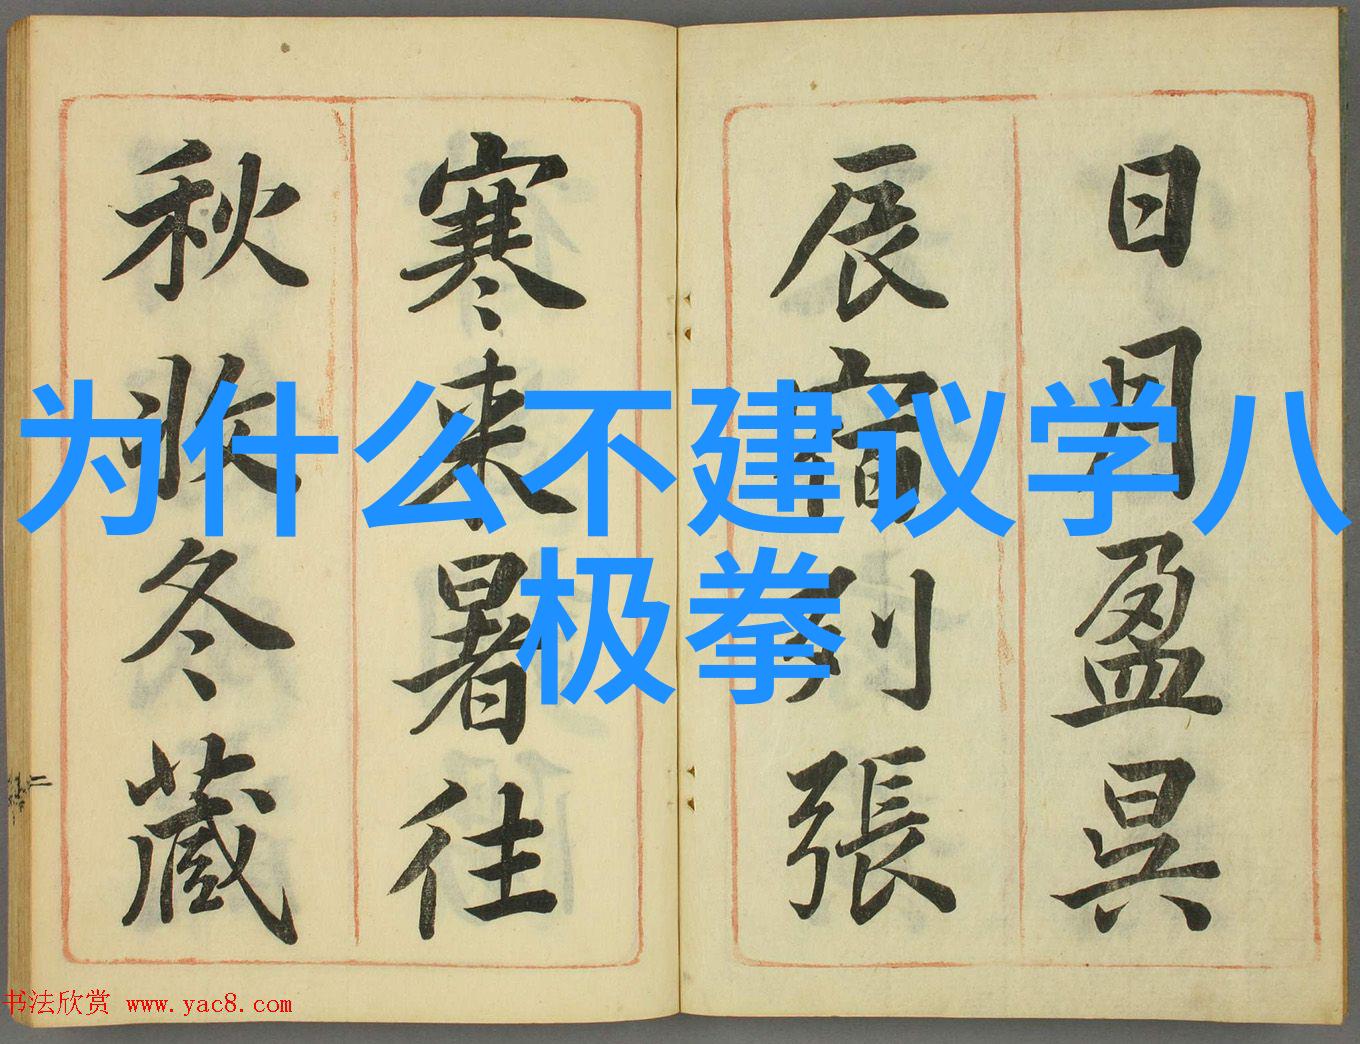 为什么不建议学八
极拳
日月盈昃
辰宿列張
寒来暑往
秋收冬藏
二
书法欣赏 www.yac8.com